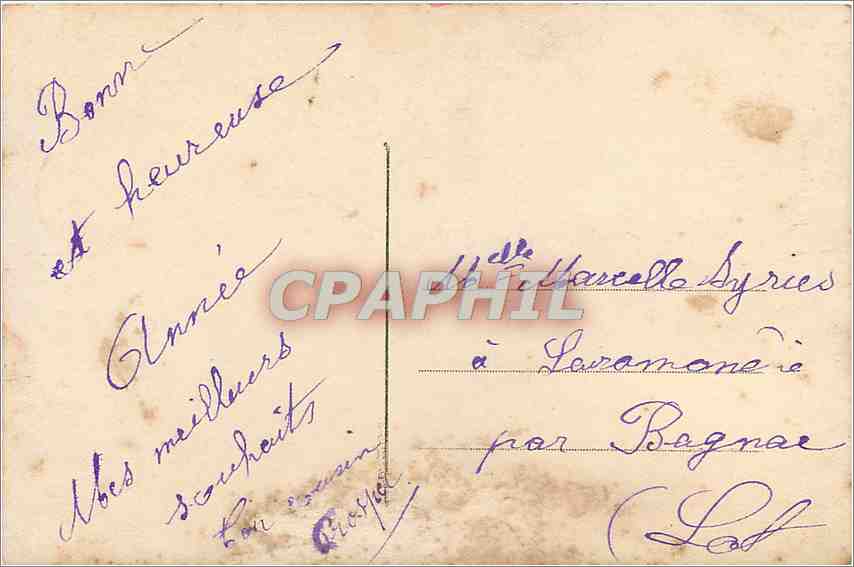 Bonne
et heureuse
Année
Mes meilleurs
souhaits
ton cousin
Prosper
CPAPHIL
Melle Marcelle Syries
à
par Bagnac
(Lot